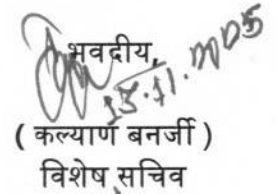 भवदीय,
13.11.2025
( कल्याण बनर्जी )
विशेष सचिव